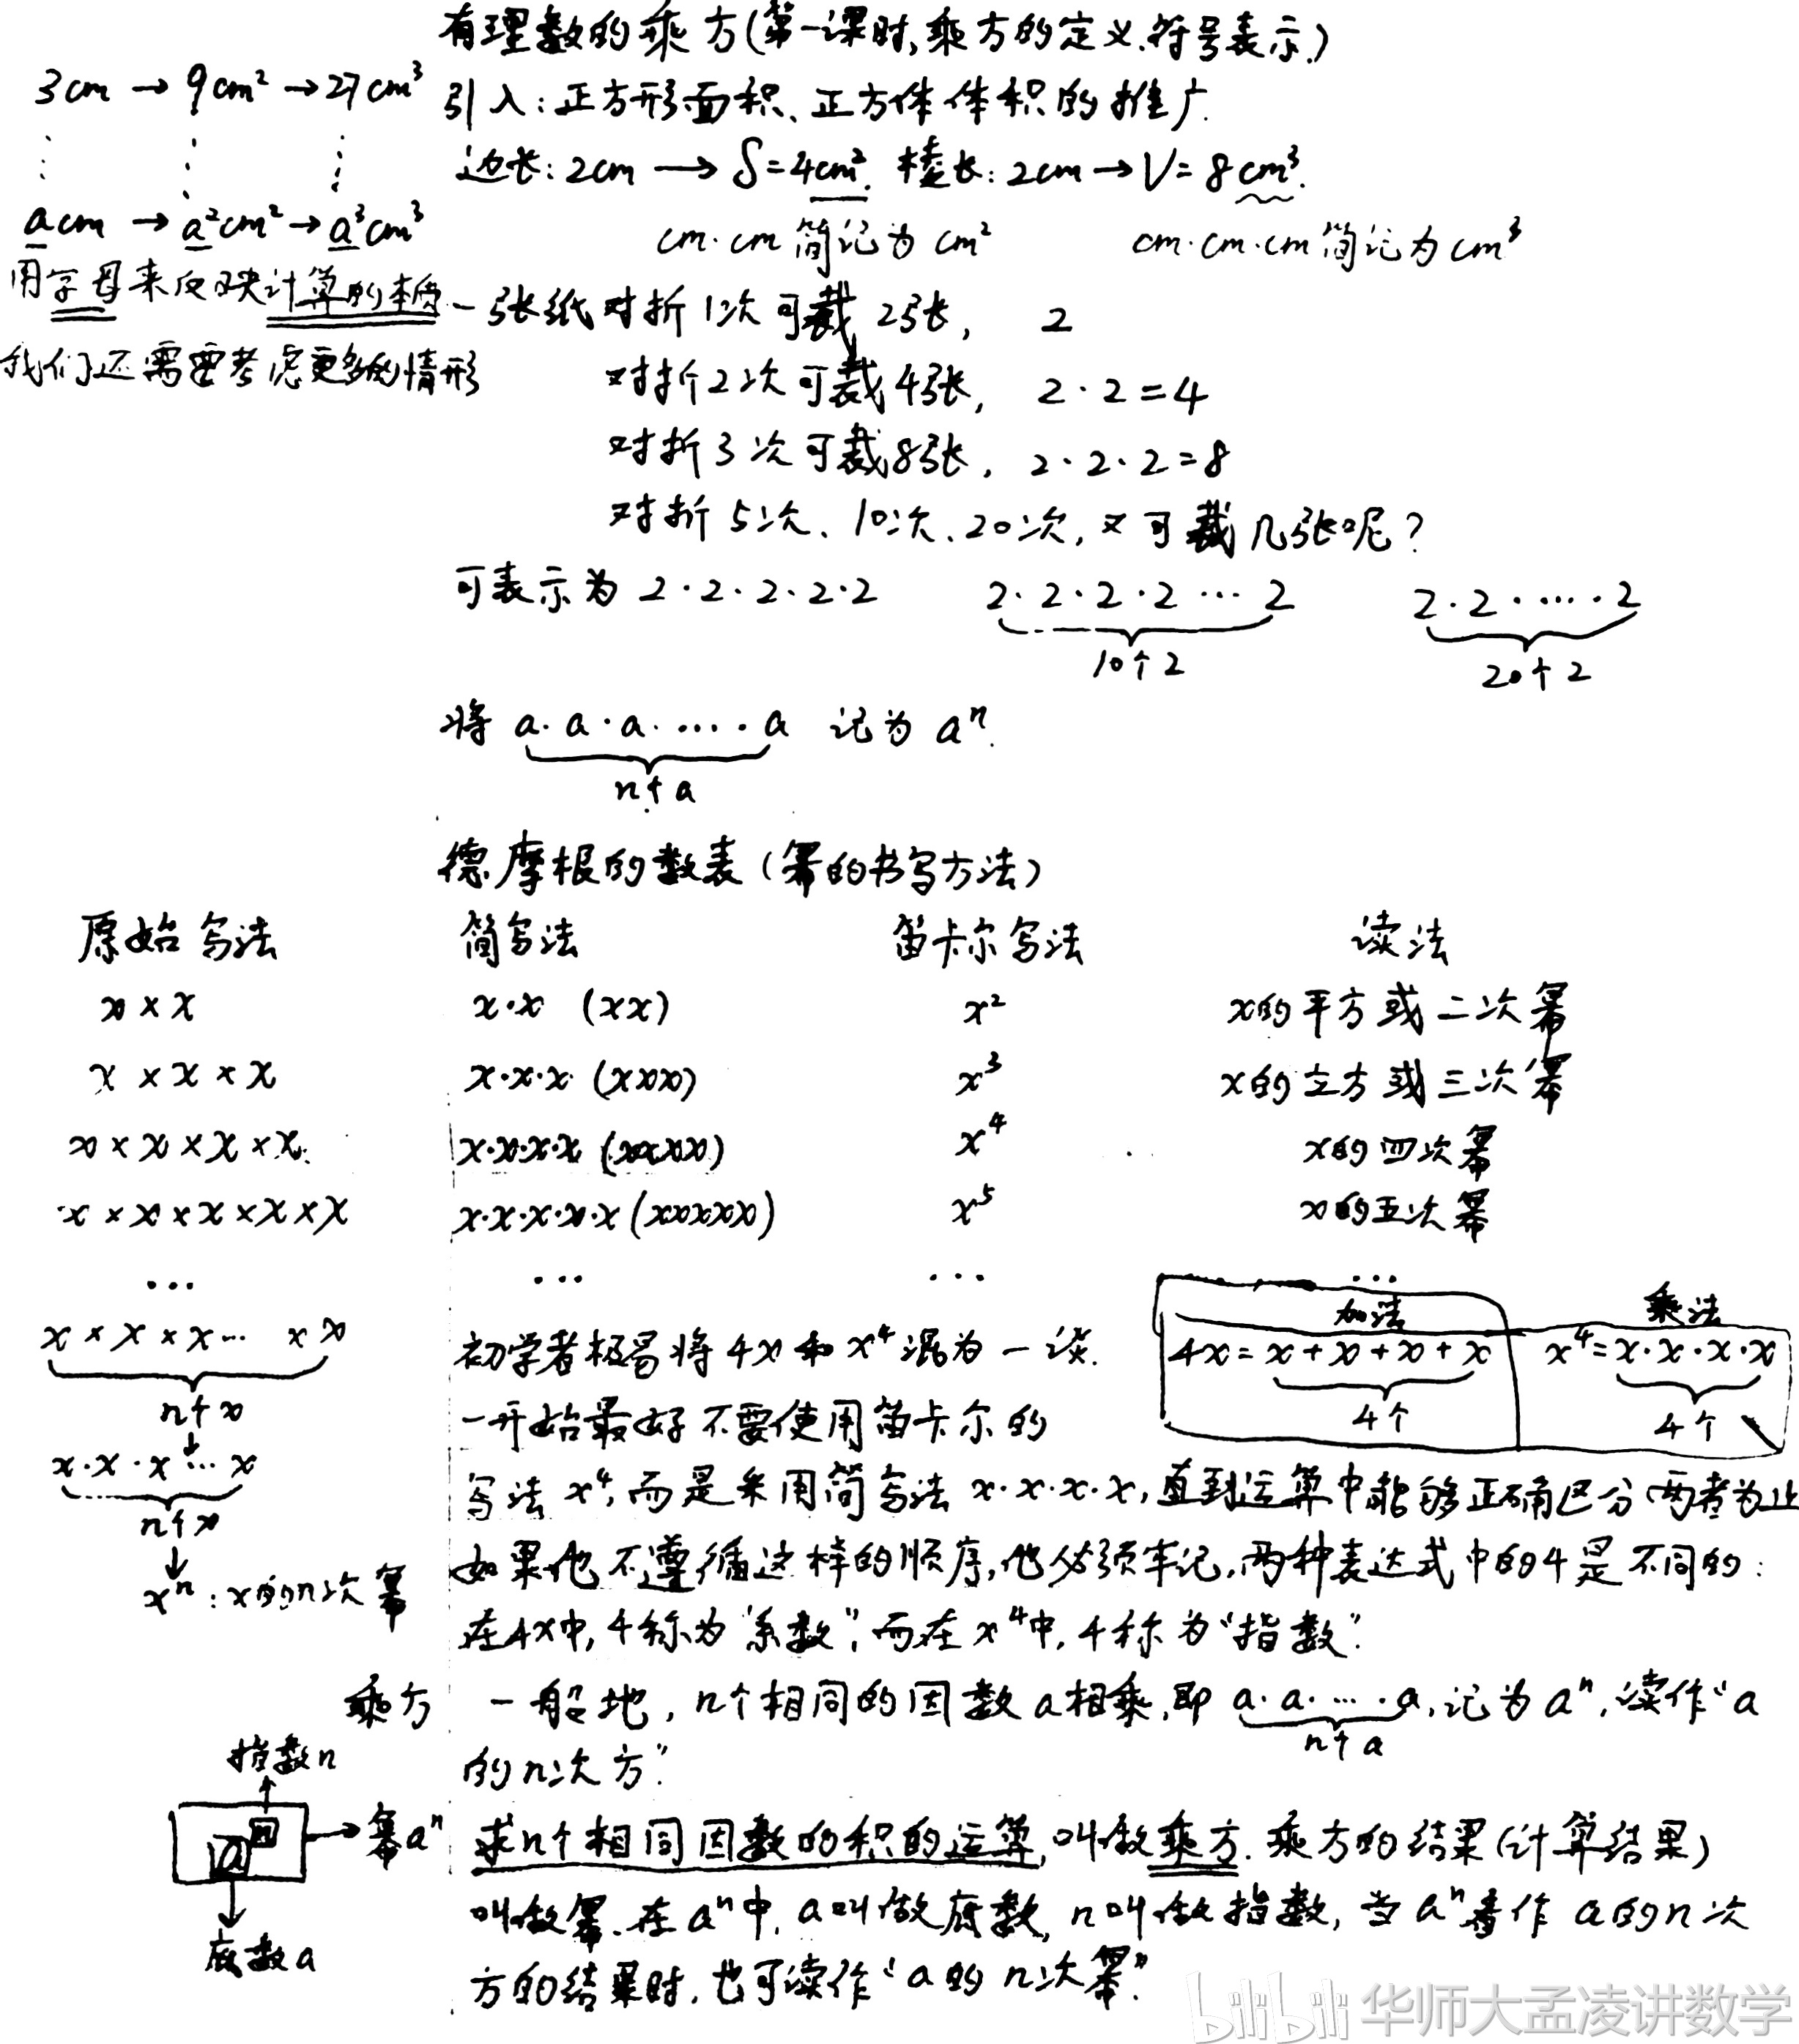 有理数的乘方(第一课时,乘方的定义.符号表示.)
3cm → 9cm² → 27cm³
引入:正方形面积、正方体体积的推广.
边长:2cm → S=4cm². 棱长:2cm → V=8cm³.
acm → a²cm² → a³cm³
cm·cm 简记为 cm²
cm·cm·cm 简记为 cm³
用字母来反映计算的本质
我们还需要考虑更多的情形
一张纸对折1次可裁 2张, 2
对折2次可裁4张, 2·2=4
对折3次可裁8张, 2·2·2=8
对折5次、10次、20次,又可裁几张呢?
可表示为 2·2·2·2·2 2·2·2·2…2 2·2·…·2
10个2 20个2
将 a·a·a·…·a 记为 aⁿ.
n个a
德摩根的数表(幂的书写方法)
原始写法 简写法 笛卡尔写法 读法
x×x x·x (xx) x² x的平方或二次幂
x×x×x x·x·x (xxx) x³ x的立方或三次幂
x×x×x×x x·x·x·x (xxxx) x⁴ x的四次幂
x×x×x×x×x x·x·x·x·x (xxxxx) x⁵ x的五次幂
… … … …
x×x×x… ×x
n个x
x·x·x…x
n个x
xⁿ:x的n次幂
加法 乘法
4x=x+x+x+x x⁴=x·x·x·x
4个 4个
初学者极易将4x和x⁴混为一谈.
一开始最好不要使用笛卡尔的
写法x⁴,而是采用简写法x·x·x·x,直到运算中能够正确区分两者为止
如果他不遵循这样的顺序,他必须牢记,两种表达式中的4是不同的:
在4x中,4称为"系数",而在x⁴中,4称为"指数".
乘方 一般地,n个相同的因数a相乘,即 a·a·…·a,记为aⁿ,读作"a
n个a
的n次方".
指数n
a n → 幂aⁿ
底数a
求n个相同因数的积的运算,叫做乘方.乘方的结果(计算结果)
叫做幂.在aⁿ中,a叫做底数,n叫做指数,当aⁿ看作a的n次
方的结果时,也可读作"a的n次幂".
bilibili 华师大孟凌讲数学